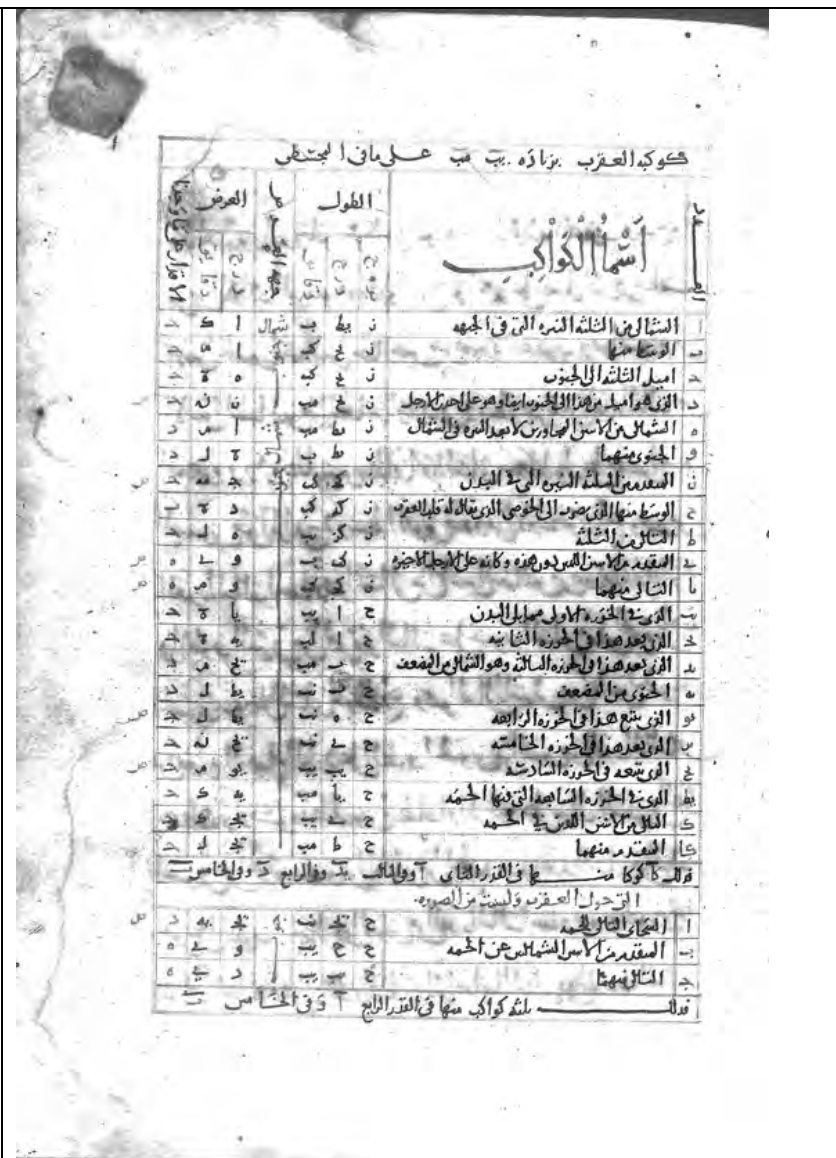 كوكبه العقرب بزياده يب مب على ما فى المجسطى
العدد
أسماء الكواكب
الطول
بروج
درج
دقايق
جهة العرض
العرض
درج
دقايق
الاقدار على ما وجدنا
ا الشمالى من الثلثه النيره التى فى الجبهه ز يط ب شمال ا ك ج
ب الوسط منها ز يح كب
ج اميل الثلثه الى الجنوب ز يح كب ه ج
د الذى هو اميل من هذا الى الجنوب ايضا وهو على احد الارجل ز يح مب ز ن
ه الشمالى من الاثنين المجاورين لابعد النيره فى الشمال ز يط مب ا م د
و الجنوبى منهما ز يط ب ه ل د
ز المتقدم من الثلثه النيره التى فى البدن ز ج مه ج
ح الوسط منها الذى يضرب الى الحمره الذى يقال له قلب العقرب ز كه كب د ه ب
ط التالى من الثلثه ز كز يب ه ل ج
ى المتقدم من الاثنين اللذين دون هذه وكانه على الارجل الاخيره ز ك يب و ى ه
يا التالى منهما ز كج كب و م ه
يب الذى فى الخرزه الاولى مما يلى البدن ح ا يب يا ه ج
يج الذى بعد هذا فى الخرزه الثانيه ح ا لب يه ه ج
يد الذى بعد هذا فى الخرزه الثالثه وهو الشمالى من المضعف ح ب مب يح م ج
يه الجنوبى من المضعف ح ب نب يط ل د
يو الذى يتبع هذا فى الخرزه الرابعه ح ه نب يط ل ج
يز الذى بعد هذا فى الخرزه الخامسه ح ى نب يح ن ج
يح الذى يتبعه فى الخرزه السادسه ح يب يب يو م ج
يط الذى فى الخرزه السابعه التى فيها الحمه ح يا مب يه ك ج
ك التالى من الاثنين اللذين فى الحمه ح ى يب يج ك ج
كا المتقدم منهما ح ط مب يج ل ج
فذلك كا كوكبا منها فى القدر الثانى ا وفى الثالث يد وفى الرابع د وفى الخامس ب
التى حول العقرب وليست من الصوره
ا السحابى التالى للحمه ح يج نب يج يه د
ب المتقدم من الاثنين الشماليين عن الحمه ح ح يب و ى ه
ج التالى منهما ح يب يب د ى ه
فذلك ثلثه كواكب منها فى القدر الرابع ا وفى الخامس ب